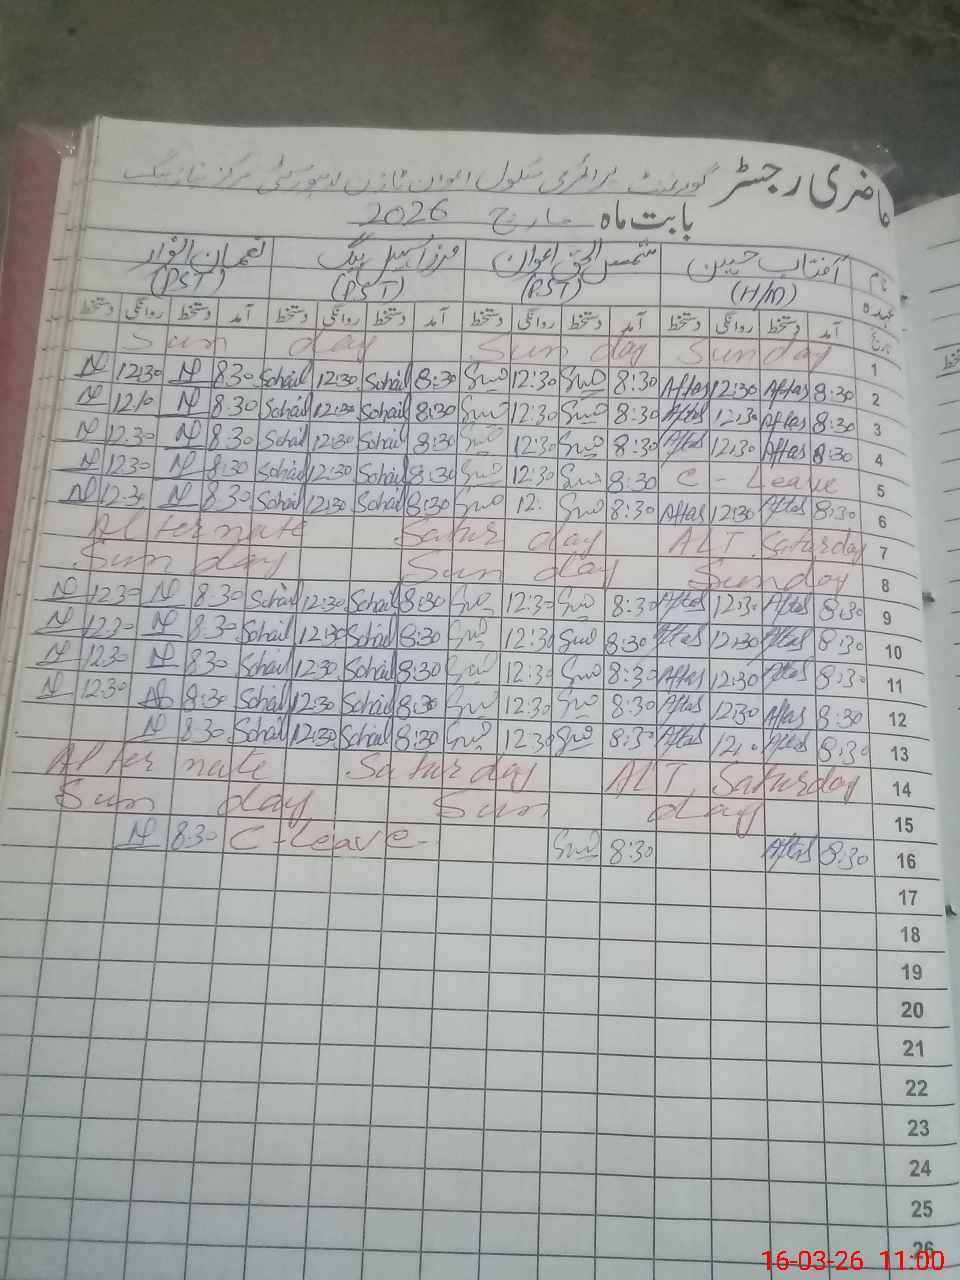 حاضری رجسٹر گورنمنٹ پرائمری سکول اعوان ٹاؤن لاہور سٹی مرکز نیاز بیگ
بابت ماہ مارچ 2026
نام آفتاب حسین شمس الحق اعوان مرزا سہیل بیگ نعمان انوار
عہدہ (H/M) (PST) (PST) (PST)
تاریخ آمد دستخط روانگی دستخط آمد دستخط روانگی دستخط آمد دستخط روانگی دستخط آمد دستخط روانگی دستخط
1 Sunday Sun day Sun day
2 8:30 Aftab 12:30 Aftab 8:30 12:30 8:30 Sohail 12:30 Sohail 8:30 N 12:30 N
3 8:30 Aftab 12:30 Aftab 8:30 12:30 8:30 Sohail 12:30 Sohail 8:30 N N
4 8:30 Aftab 12:30 Aftab 8:30 12:30 8:30 Sohail 12:30 Sohail 8:30 N 12:30 N
5 C - Leave 8:30 12:30 8:30 Sohail 12:30 Sohail 8:30 N 12:30 N
6 8:30 Aftab 12:30 Aftab 8:30 12: 8:30 Sohail 12:30 Sohail 8:30 N 12:30 N
7 ALT. Saturday Satur day Alternate
8 Sunday Sun day Sun day
9 8:30 Aftab 12:30 Aftab 8:30 12:30 8:30 Sohail 12:30 Sohail 8:30 N 12:30 N
10 8:30 Aftab 12:30 Aftab 8:30 12:30 8:30 Sohail 12:30 Sohail 8:30 N 12:30 N
11 8:30 Aftab 12:30 Aftab 8:30 12:30 8:30 Sohail 12:30 Sohail 8:30 N 12:30 N
12 8:30 Aftab 12:30 Aftab 8:30 12:30 8:30 Sohail 12:30 Sohail 8:30 12:30 N
13 8:30 Aftab Aftab 8:30 12:30 8:30 Sohail 12:30 Sohail 8:30 N
14 ALT. Saturday Saturday Alter nate
15 Sun day Sun day
16 8:30 Aftab 8:30 C - Leave - 8:30 N
17
18
19
20
21
22
23
24
25
26
16-03-26 11:00